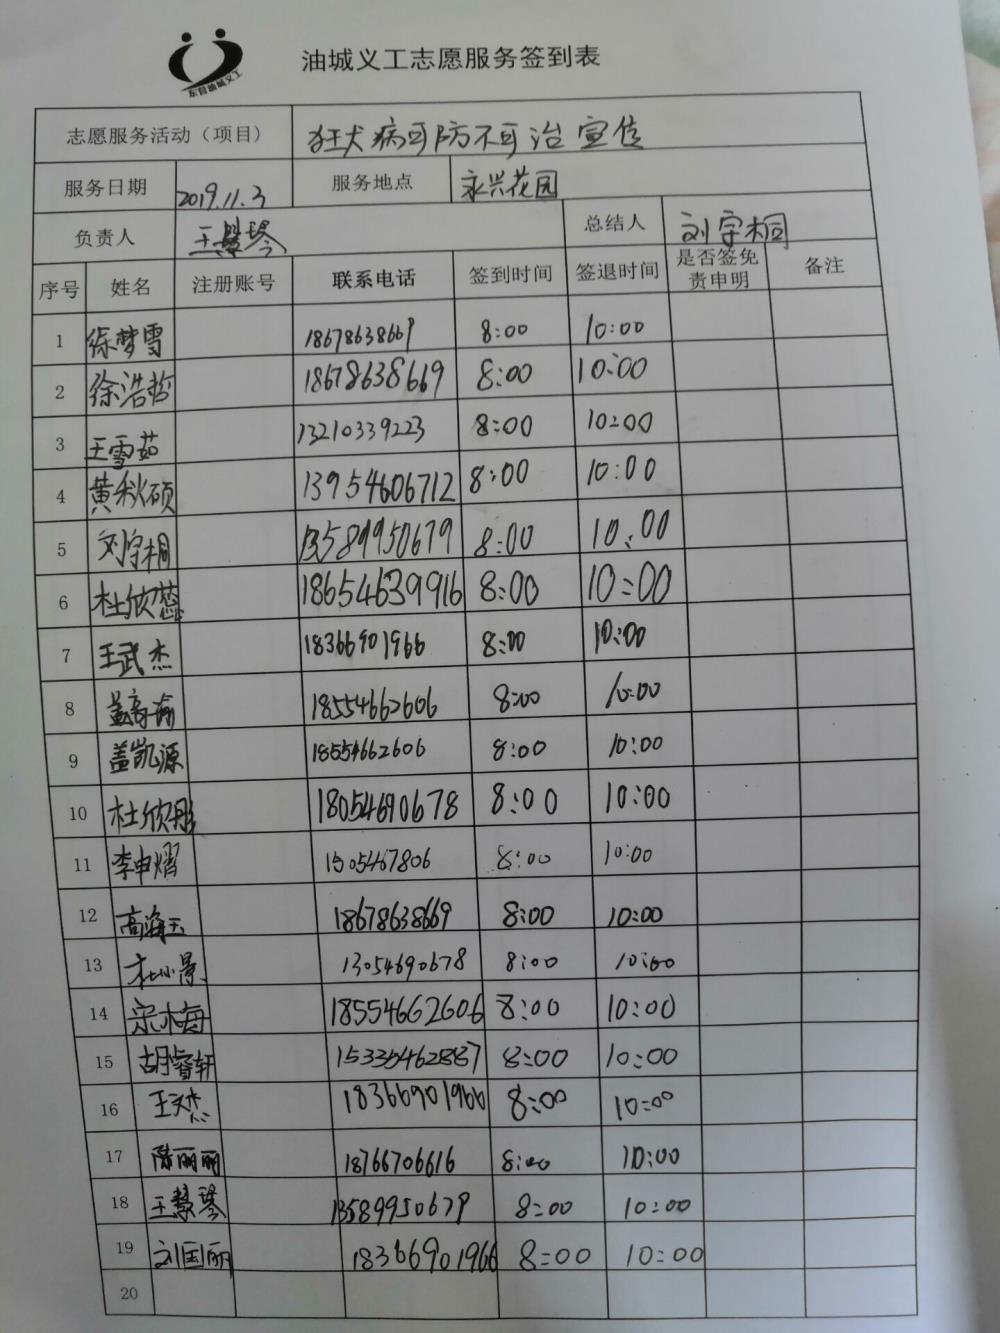 东营油城义工
油城义工志愿服务签到表
志愿服务活动（项目） 狂犬病可防不可治宣传
服务日期 2019.11.3 服务地点 永兴花园
负责人 王慧琴 总结人 刘宇桐
序号 姓名 注册账号 联系电话 签到时间 签退时间 是否签免责申明 备注
1 徐梦雪 18678638669 8:00 10:00
2 徐浩哲 18678638669 8:00 10:00
3 王雪茹 13210339223 8:00 10:00
4 黄秋硕 13954606712 8:00 10:00
5 刘宇桐 13589950679 8:00 10:00
6 杜欣蕊 18654639916 8:00 10:00
7 王武杰 18366901966 8:00 10:00
8 18554662606 8:00 10:00
9 盖凯源 18554662606 8:00 10:00
10 杜欣彤 18054690678 8:00 10:00
11 李申熠 1505467806 8:00 10:00
12 高海玉 18678638669 8:00 10:00
13 杜小景 13054690678 8:00 10:00
14 宗木梅 18554662606 8:00 10:00
15 胡睿轩 15335462887 8:00 10:00
16 王文杰 18366901966 8:00 10:00
17 陈丽丽 18766706616 8:00 10:00
18 王慧琴 13589950679 8:00 10:00
19 刘国丽 18366901966 8:00 10:00
20